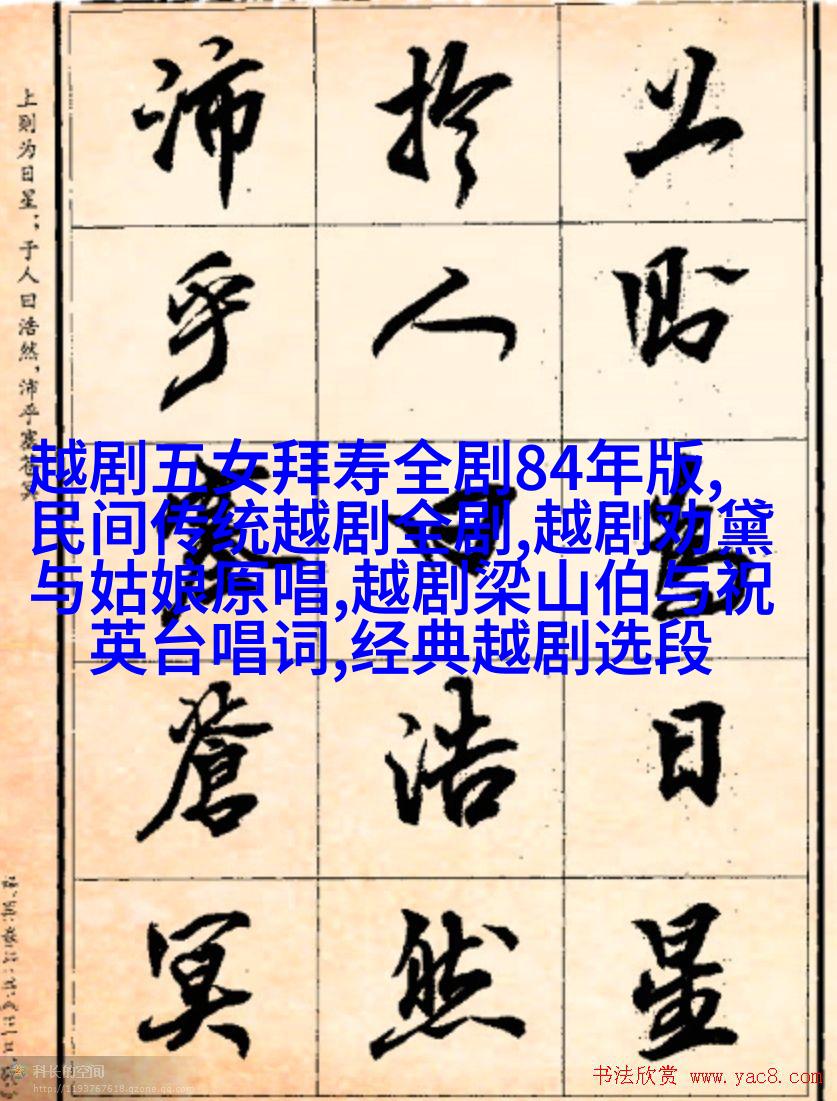 上則為日星
扵人曰浩然
沛乎塞蒼冥
上则为日星；于人曰浩然，沛乎塞苍冥
越剧五女拜寿全剧84年版,
民间传统越剧全剧,越剧劝黛
与姑娘原唱,越剧梁山伯与祝
英台唱词,经典越剧选段
科长的空间
http://1193767618.qzone.qq.com
书法欣赏 www.yac8.com